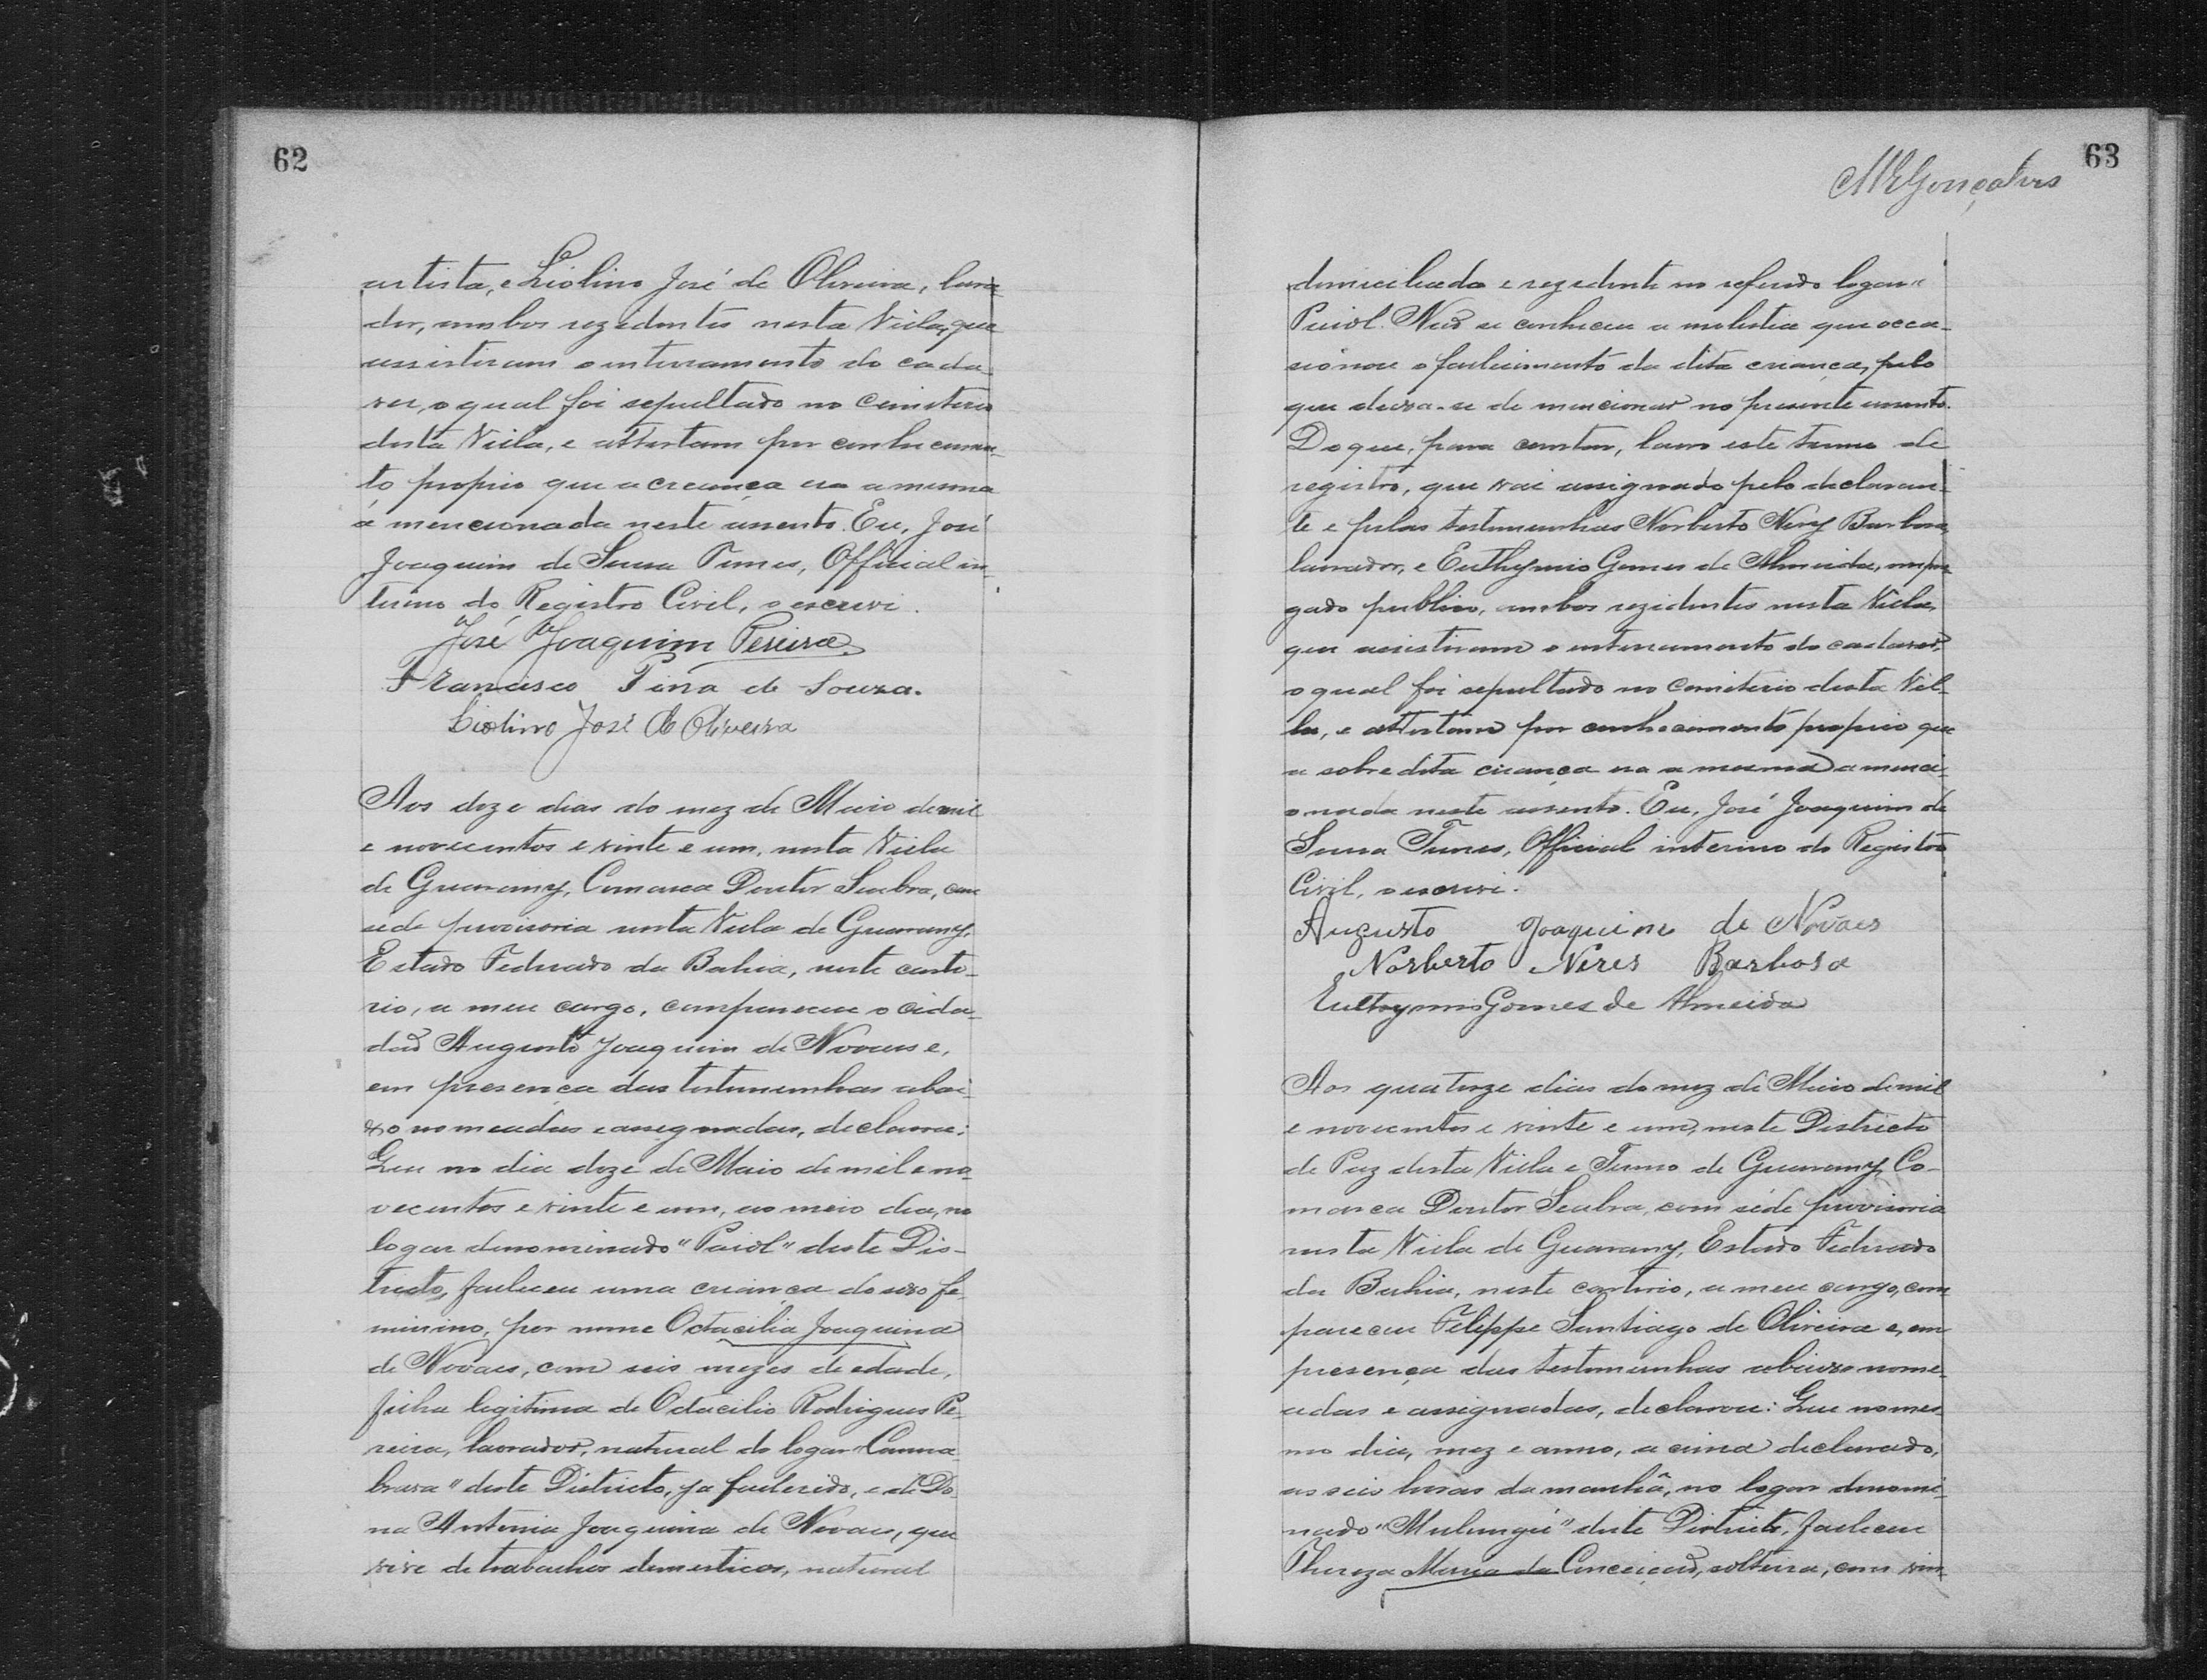 62
artista, e Liolino José de Oliveira, lavra-
dor, ambos rezidentes nesta Villa, que
assistiram o enterramento do cada-
ver, o qual foi sepultado no cemiterio
desta Villa, e attestam por conhecimen-
to proprio que a creança era a mesma
a mencionada neste assento. Eu, José
Joaquim de Souza Tunes, Official in-
terino do Registro Civil, o escrevi.
José Joaquim Pereira
Francisco Pina de Souza.
Liolino José de Oliveira
Aos doze dias do mez de Maio de mil
e novecentos e vinte e um, nesta Villa
de Guarany, Comarca Doutor Seabra, com
séde provisoria nesta Villa de Guarany,
Estado Federado da Bahia, neste carto-
rio, a meu cargo, compareceu o cida-
dão Augusto Joaquim de Novaes e,
em presença das testemunhas abai-
xo nomeadas e assignadas, declarou:
Que no dia doze de Maio de mil e no-
vecentos e vinte e um, ao meio dia, no
logar denominado "Paiol" deste Dis-
tricto, falleceu uma criança do sexo fe-
minino, por nome Octacilia Joaquina
de Novaes, com seis mezes de edade,
filha legitima de Octacilio Rodrigues Pe-
reira, lavrador, natural do logar "Canna-
brava" deste Districto, ja fallecido, e de Do-
na Antonia Joaquina de Novaes, que
vive de trabalhos domesticos, natural
63
MRGonçalves
domiciliada e rezidente no referido logar "
Paiol. Não se conheceu a molestia que occa-
sionou o fallecimento da dita criança, pelo
que deixa-se de mencionar no presente assento.
Do que, para constar, lavro este termo de
registro, que vai assignado pelo declaran-
te e pelas testemunhas Norberto Nery Barbosa,
lavrador, e Euthymio Gomes de Almeida, empre-
gado publico, ambos rezidentes nesta Villa,
que assistiram o enterramento do cadaver,
o qual foi sepultado no cemiterio desta Vil-
la, e attestam por conhecimento proprio que
a sobredita criança era a mesma a menci-
onada neste assento. Eu, José Joaquim de
Souza Tunes, Official interino do Registro
Civil, o escrevi.
Augusto Joaquim de Novaes
Norberto Neres Barbosa
Euthymio Gomes de Almeida
Aos quatorze dias do mez de Maio de mil
e novecentos e vinte e um, neste Districto
de Paz desta Villa e Termo de Guarany, Co-
marca Doutor Seabra, com séde provisoria
nesta Villa de Guarany, Estado Federado
da Bahia, neste cartorio, a meu cargo, com-
pareceu Felippe Santiago de Oliveira e, em
presença das testemunhas abaixo nome-
adas e assignadas, declarou: Que no mes-
mo dia, mez e anno, acima declarado,
as seis horas da manhã, no logar denomi-
nado "Mulungú" deste Districto, falleceu
Thereza Maria da Conceição, solteira, com vin-